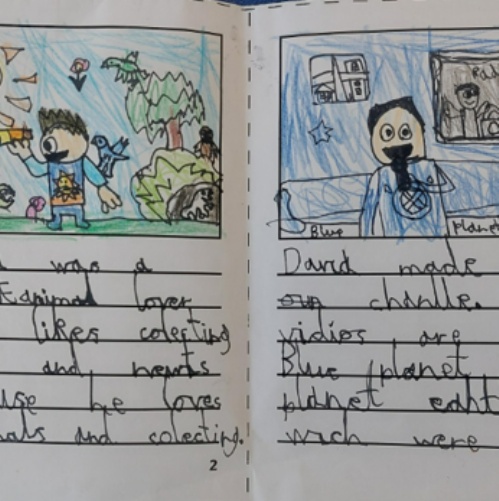 Blue planet
was a
animal lover
likes colecting
and newts
use he loves
als and colecting.
2
David made
chanlle.
vidios are
Blue planet
planet eaht
wich were